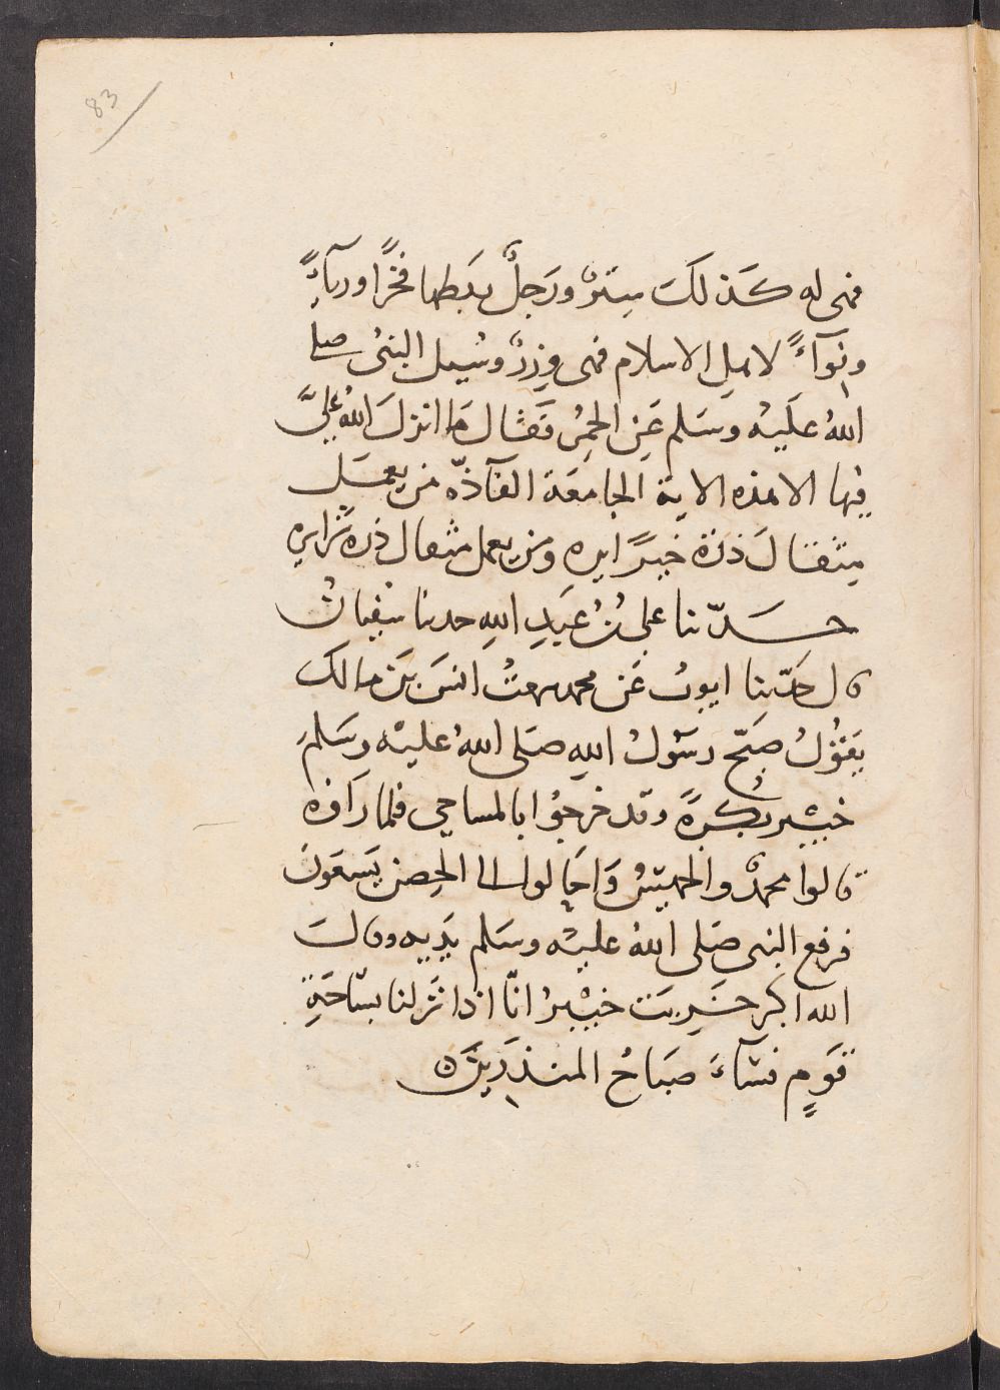 83
فهى له كَذلكَ سِترٌ ورَجلٌ ربَطها فخرًا ورِيآءً
ونِوَآءً لاهلِ الاسلام فهى وِزرٌ وسُيل النبىُ صلى
اللهُ علَيهْ وسَلم عَنِ الحمُرِ فَقَال مَا انزلَ اللهُ علىَّ
فيها الا هذه الاية الجامعَة الفآذّه من يعمَل
مِثقالَ ذرة خيرًا يره ومن يعمل مثقال ذرة شرًا يره
حَدّثنا على بنُ عَبدِ اللهِ حدثنا سفيان
قال حَدّثنا ايوبُ عَن محمد سمعتُ انسَ بنَ مالك
يَقُولُ صبّح رسَولُ اللهِ صَلى اللهُ عليهْ وسَلمَ
خيبرَ بُكرةً وقد خرجوُا بالمساحى فلما رَاوْه
قالوا محمدٌ والخميسُ وَاحَالوا الى الحِصن يَسعَونَ
فرفع النبى صَلى اللهُ عليْه وسَلم يَديه وقالَ
الله اكبر خَرِبَت خيبَرُ انّا اذا نَزلنا بسَاحَةِ
قَومٍ فسَآءَ صبَاحُ المنذَرِينَ ه